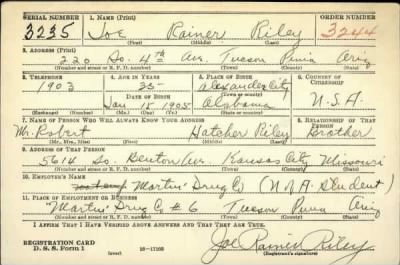 SERIAL NUMBER 1. NAME (Print) ORDER NUMBER
3235 Joe Rainer Riley 3244
(First) (Middle) (Last)
2. ADDRESS (Print)
220 So. 4th Av. Tucson Pima Ariz
(Number and street or R. F. D. number) (Town) (County) (State)
3. TELEPHONE 4. AGE IN YEARS 5. PLACE OF BIRTH 6. COUNTRY OF CITIZENSHIP
1903 35 Alexander City
DATE OF BIRTH (Town or county)
Jan 15 1905 Alabama U.S.A.
(Mo.) (Day) (Yr.) (State or country)
7. NAME OF PERSON WHO WILL ALWAYS KNOW YOUR ADDRESS 8. RELATIONSHIP OF THAT PERSON
Mr. Robert Hatcher Riley Brother
(Mr., Mrs., Miss) (First) (Middle) (Last)
9. ADDRESS OF THAT PERSON
5614 So. Benton Av. Kansas City Missouri
(Number and street or R. F. D. number) (Town) (County) (State)
10. EMPLOYER'S NAME
Martin' Drug Co (Student)
11. PLACE OF EMPLOYMENT OR BUSINESS
"Martin' Drug Co # 6 Tucson Pima Ariz
(Number and street or R. F. D. number) (Town) (County) (State)
I AFFIRM THAT I HAVE VERIFIED ABOVE ANSWERS AND THAT THEY ARE TRUE.
REGISTRATION CARD
D. S. S. Form 1 (over) 16-17105 Joe Rainer Riley
(Registrant's signature)